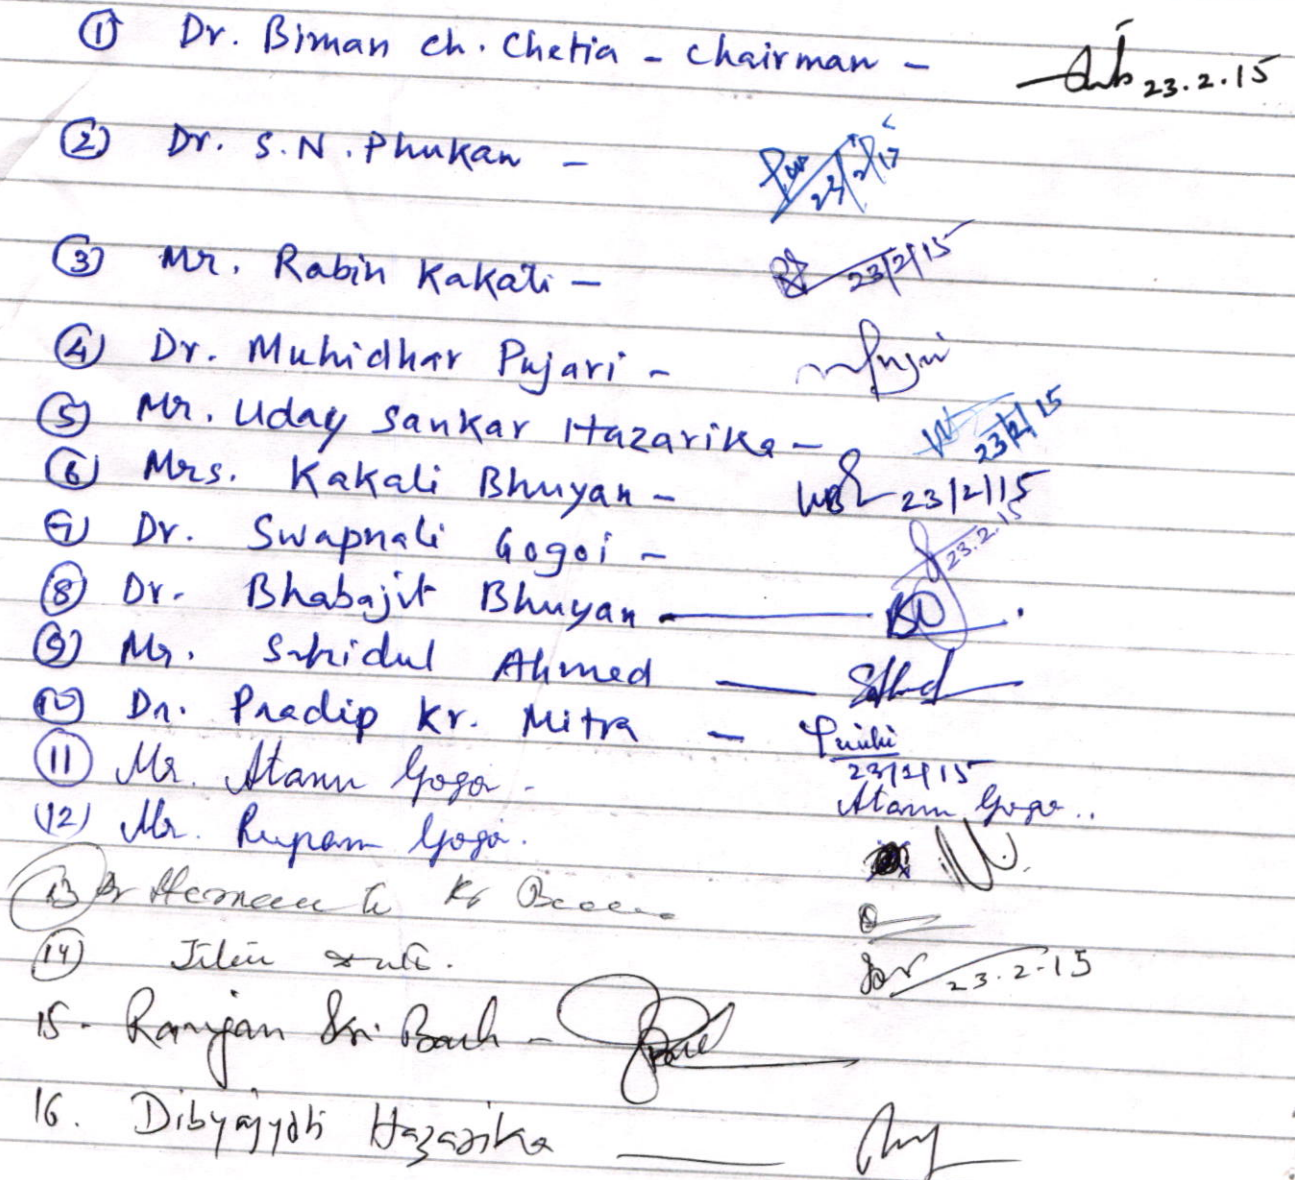 ① Dr. Biman Ch. Chetia - Chairman - 23.2.15
② Dr. S.N. Phukan - 23/2/15
③ Mr. Rabin Kakati - 23/2/15
④ Dr. Muhidhar Pujari -
⑤ Mr. Uday Sankar Hazarika - 23/2/15
⑥ Mrs. Kakali Bhuyan - 23/2/15
⑦ Dr. Swapnali Gogoi - 23.2.15
⑧ Dr. Bhabajit Bhuyan
⑨ Mr. Sahidul Ahmed
⑩ Dr. Pradip Kr. Mitra - 23/2/15
⑪ Mr. Atanu Gogoi - Atanu Gogoi..
(12) Mr. Rupam Gogoi.
⑬ Dr Kr
⑭ 23.2.15
15- Ranjan Kr. -
16. Dibyajyoti Hazarika